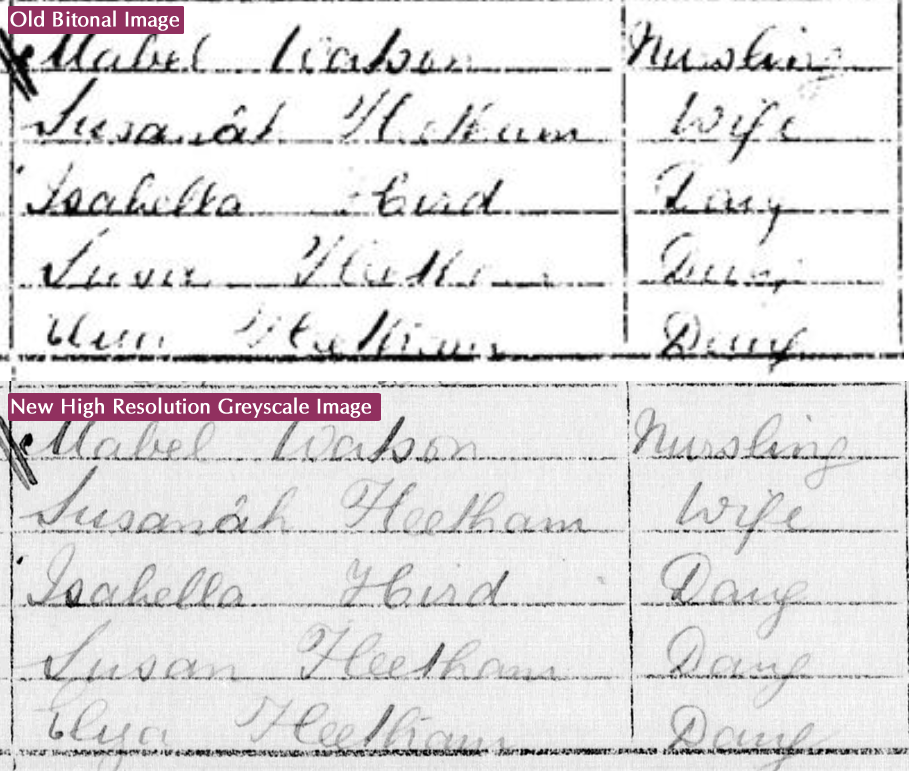 Old Bitonal Image
Mabel Watson Nursling
Susanáh Heetham Wife
Isabella Hird Daug
Susan Heetham Daug
Heetham Daug
New High Resolution Greyscale Image
Mabel Watson Nursling
Susanáh Heetham Wife
Isabella Hird Daug
Susan Heetham Daug
Eliza Heetham Daug